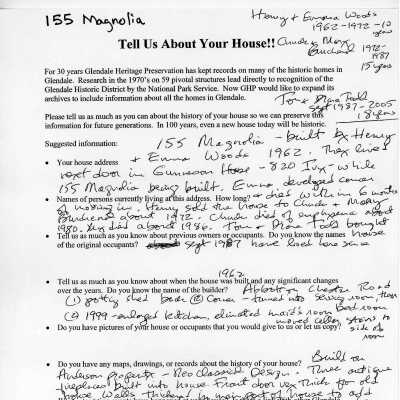 155 Magnolia
Henry + Emma Woods
1962-1972-10
years
Tell Us About Your House!!
Chuck + Mary
Burchend 1972-
1987
15 years
For 30 years Glendale Heritage Preservation has kept records on many of the historic homes in
Glendale. Research in the 1970's on 59 pivotal structures lead directly to recognition of the
Glendale Historic District by the National Park Service. Now GHP would like to expand its
archives to include information about all the homes in Glendale.
Tom + Diana Todd
Sept 1987-2005
18 years
Please tell us as much as you can about the history of your house so we can preserve this
information for future generations. In 100 years, even a new house today will be historic.
Suggested information:
155 Magnolia - built by Henry
• Your house address
+ Emma Woods 1962. They lived
next door in Gunnerson House - 820 Ivy - while
155 Magnolia being built. Emma developed cancer
• Names of persons currently living at this address. How long?
+ died within 6 months
of moving in. Henry sold the house to Chuck + Mary
Burchend about 1972. Chuck died of emphysema about
1980. died about 1986. Tom + Diana Todd bought
• Tell us as much as you know about previous owners or occupants. Do you know the names
house
of the original occupants?
Sept 1987 have lived here since
1962
• Tell us as much as you know about when the house was built and any significant changes
over the years. Do you know the name of the builder?
Chester Road
(1) potting shed back (2) Cover - turned into sewing room, then
bedroom
(2) 1999 - enlarged kitchen, eliminated maid's room
moved stairs to
side of
room
• Do you have pictures of your house or occupants that you would give to us or let us copy?
• Do you have any maps, drawings, or records about the history of your house?
Built on
Anderson property - Neo classical Design. Three antique
fireplaces built into house. Front door very thick for old
house. Walls thickened in major part of house to add